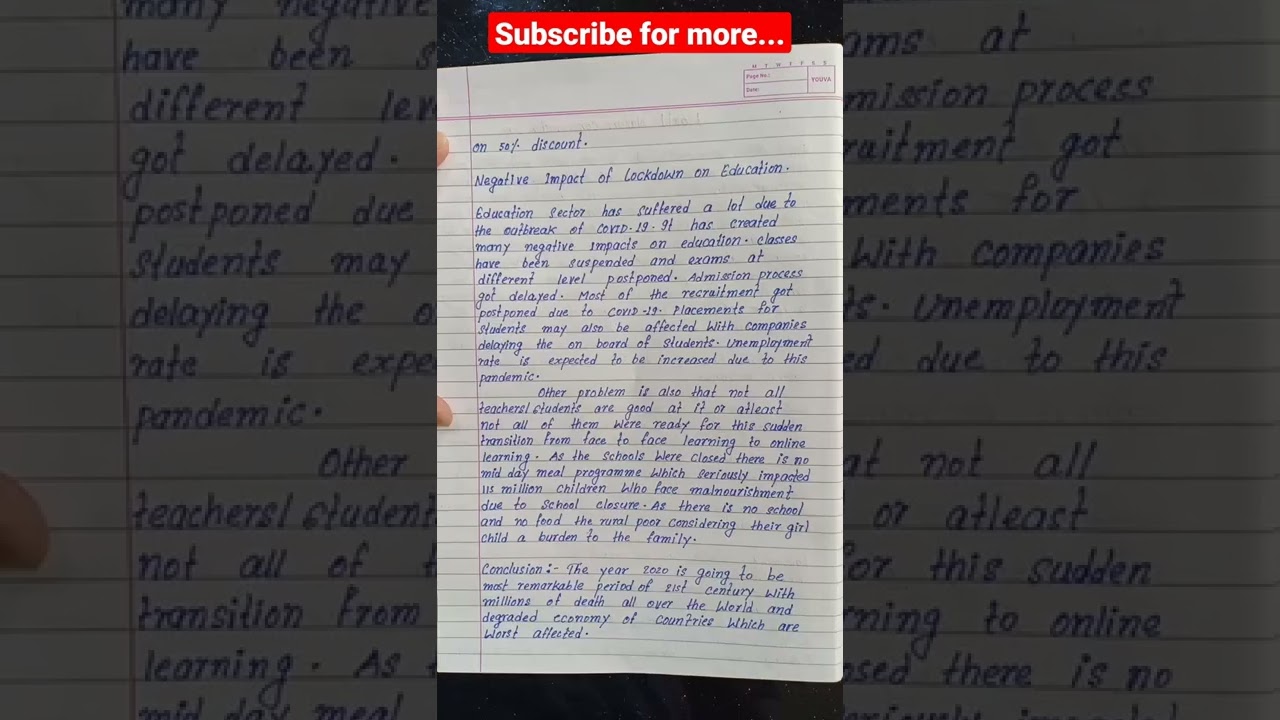 Subscribe for more...
M T W T F S S
Page No.:
Date:
YOUVA
on 50% discount.
Negative Impact of Lockdown on Education.
Education Sector has suffered a lot due to
the outbreak of COVID-19. It has created
many negative impacts on education. classes
have been suspended and exams at
different level postponed. Admission process
got delayed. Most of the recruitment got
postponed due to COVID-19. Placements for
Students may also be affected With companies
delaying the on board of Students. Unemployment
rate is expected to be increased due to this
pandemic.
Other problem is also that not all
teachers/students are good at it or atleast
not all of them were ready for this sudden
transition from face to face learning to online
learning. As the schools were closed there is no
mid day meal programme which seriously impacted
115 million children who face malnourishment
due to school closure. As there is no school
and no food the rural poor considering their girl
child a burden to the family.
Conclusion:- The year 2020 is going to be
most remarkable period of 21st century with
millions of death all over the world and
degraded economy of countries which are
worst affected.